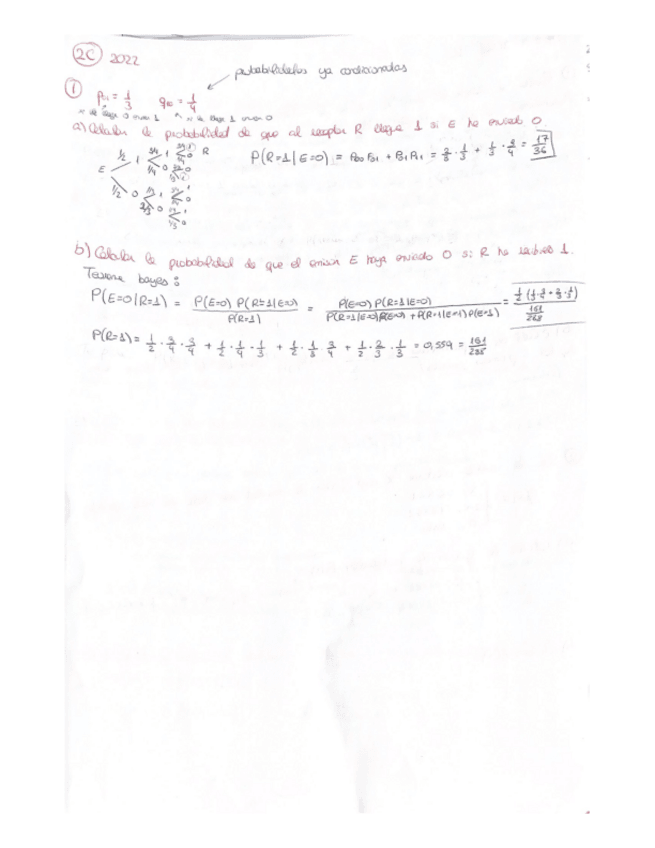 2C 2022
probabilidades ya condicionadas
1 P01 = 1/3 q10 = 1/4
a) Calcular la probabilidad de que al receptor R llegue 1 si E ha enviado 0.
E 1/2 1 3/4 1 R
1/4 0
1/2 0 1/3 1
2/3 0
P(R=1|E=0) = P00 P01 + P01 P11 = 2/3 · 1/3 + 1/3 · 3/4 = 17/36
b) Calcular la probabilidad de que el emisor E haya enviado 0 si R ha recibido 1.
Teorema bayes:
P(E=0|R=1) = P(E=0) P(R=1|E=0) / P(R=1) = P(E=0) P(R=1|E=0) / P(R=1|E=0)P(E=0) + P(R=1|E=1)P(E=1) = 1/2 (1/3 · 3/4 + 2/3 · 1/3) /
P(R=1) = 1/2 · 3/4 · 3/4 + 1/2 · 1/4 · 1/3 + 1/2 · 1/3 · 3/4 + 1/2 · 2/3 · 1/3 = 0,559 =